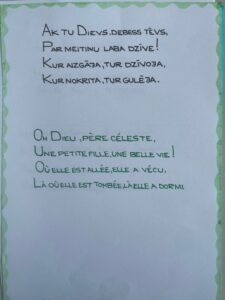 AK TU DIEVS, DEBESS TĒVS,
PAR MEITIŅU LABA DZĪVE!
KUR AIZGĀJA, TUR DZĪVOJA,
KUR NOKRITA, TUR GULĒJA.
OH DIEU, PÈRE CÉLESTE,
UNE PETITE FILLE, UNE BELLE VIE!
OÙ ELLE EST ALLÉE, ELLE A VÉCU.
LÀ OÙ ELLE EST TOMBÉE, LÀ ELLE A DORMI.